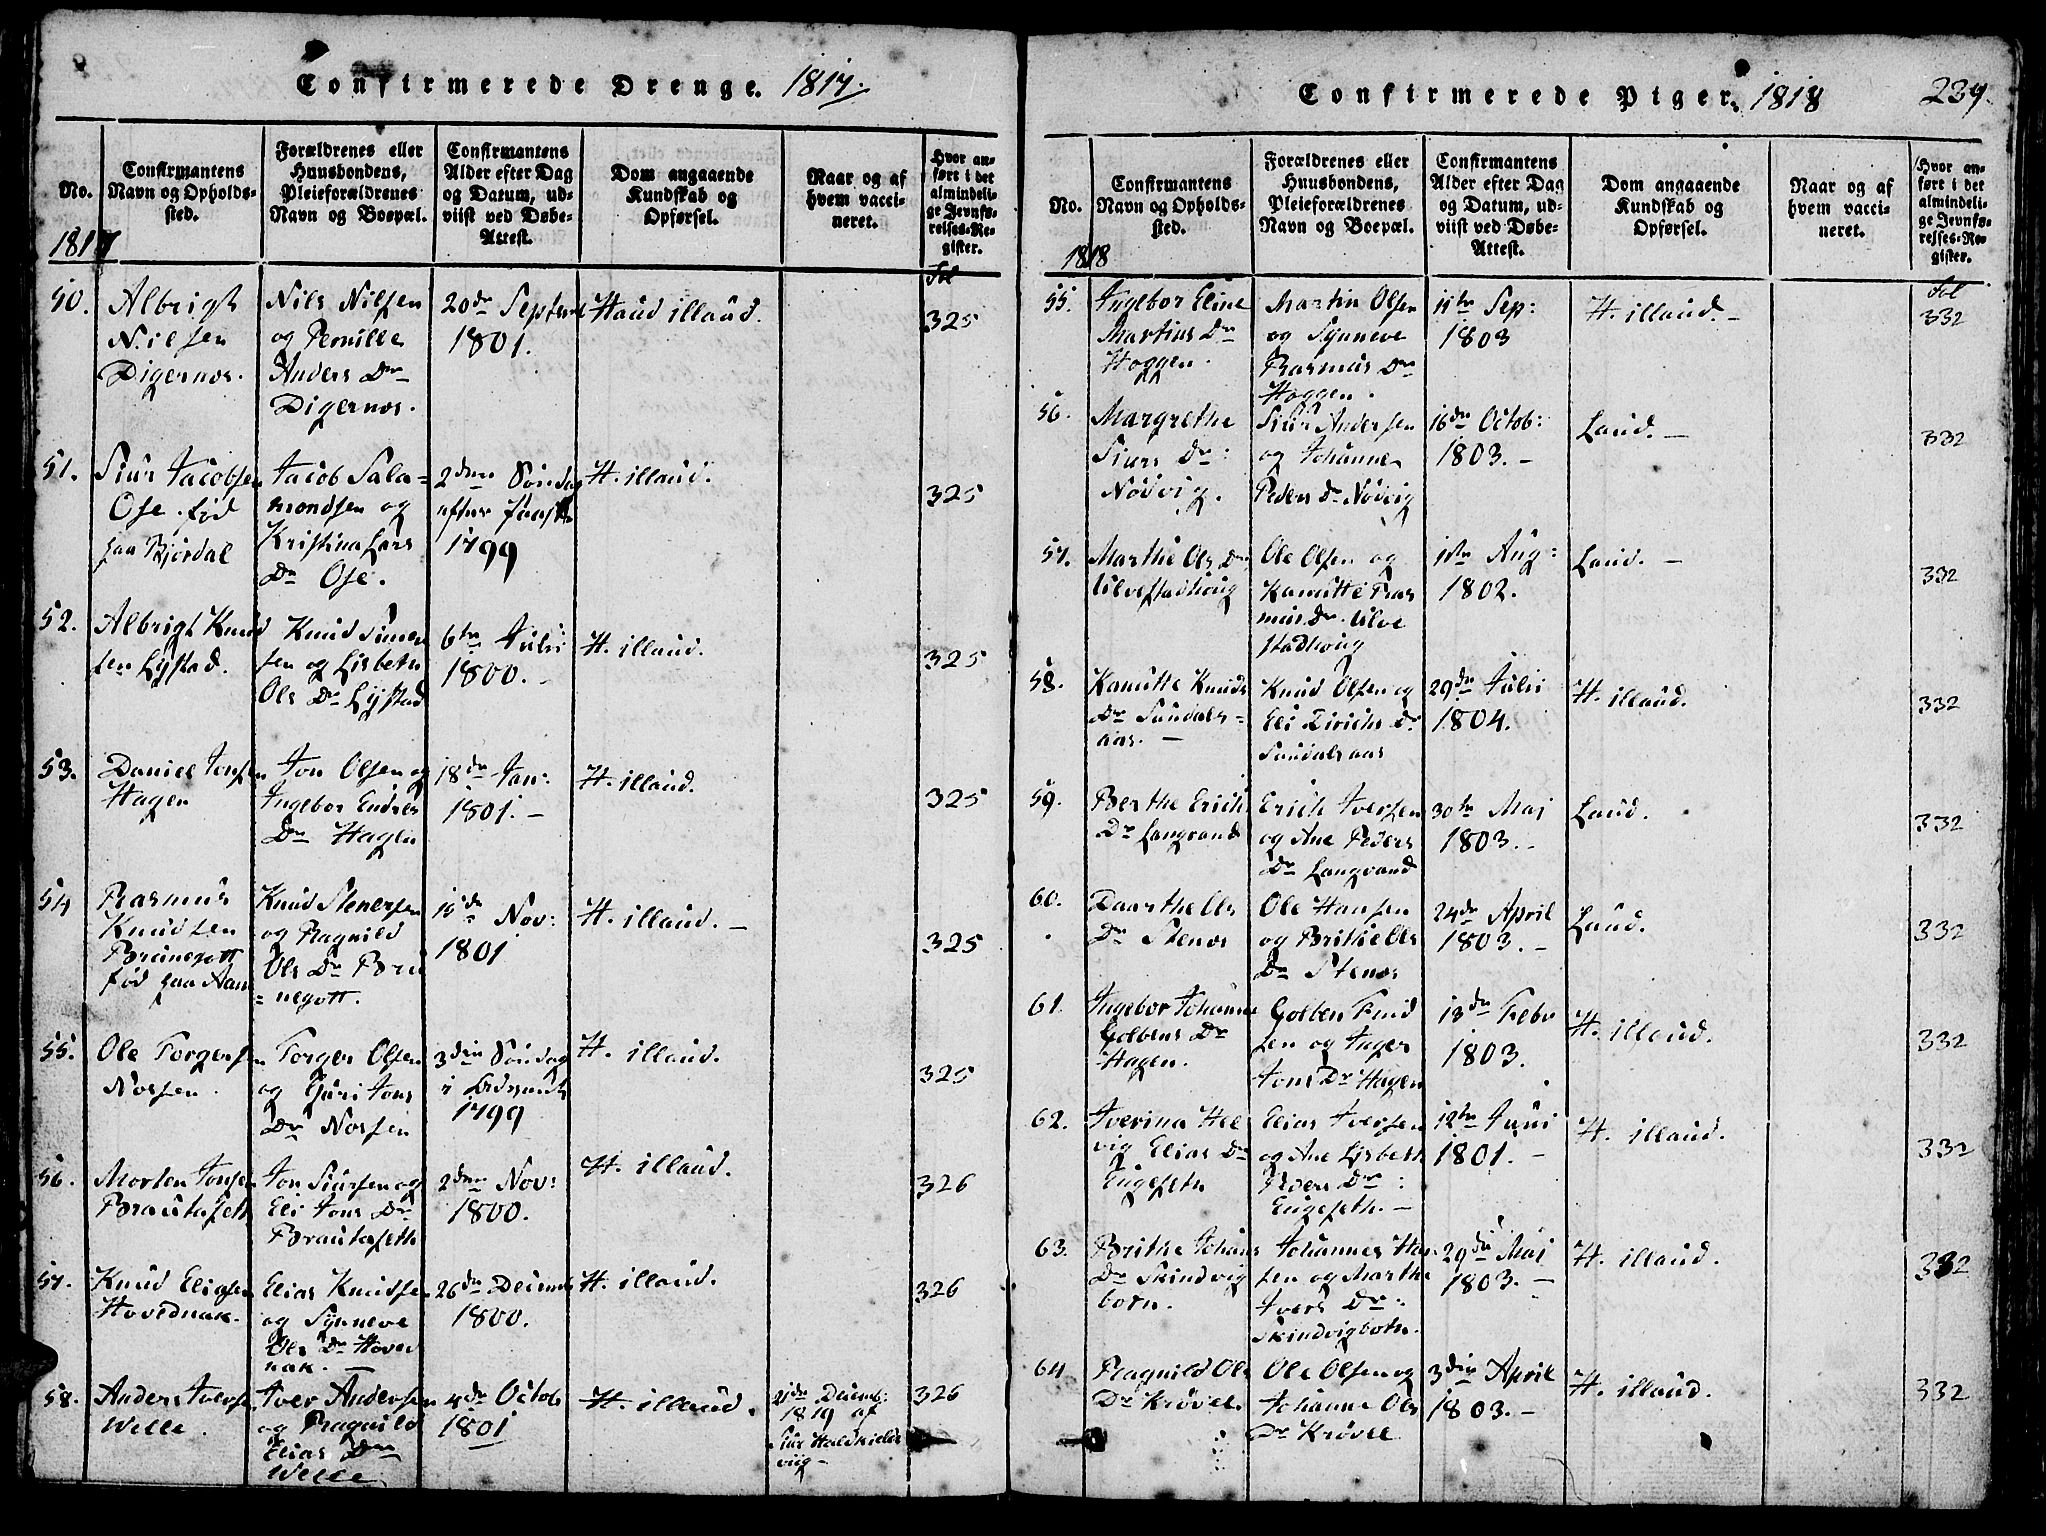 Confirmerede Drenge. 1817.
No.
Confirmantens
Navn og Opholds-
sted.
Forældrenes eller
Huusbondens,
Pleieforældrenes
Navn og Boepæl.
Confirmantens
Alder efter Dag
og Datum, ud-
viist ved Døbe-
Attest.
Dom angaaende
Kundskab og
Opførsel.
Naar og af
hvem vacci-
neret.
Hvor an-
ført i det
almindeli-
ge Jevnfø-
relses-Re-
gister.
1817
Fol
50.
Albrigt
Nilsen
Digernes.
Nils Nilsen
og Pernille
Anders Dr
Digernes.
20de Septemb
1801.
Haud illaud.
325
51.
Siur Jacobsen
Ose. fød
paa Bjørdal
Jacob Sala-
mondsen og
Kristina Lars
Dr Ose.
2den Søndag
efter
1799
H. illaud.
325
52.
Albrigt Knud
sen Lystad.
Knud Simen
sen og Lisbeth
Ols Dr Lystad
6te Julii
1800.
H. illaud.
325
53.
Daniel Jonsen
Hagen
Jon Olsen og
Ingebor Endres
Dr Hagen
18de Jan:
1801. -
H. illaud.
325
54
Rasmus
Knudsen
Brunegott
fød paa Aam
Knud Stenersen
og Ragnild
Ols Dr Bru
= negott.
15de Nov:
1801
H. illaud. -
325
55.
Ole Torgersen
Nossen
Torger Olsen
og Guri Jons
Dr Nossen
3die Søndag
i
1799
H. illaud.
325
56.
Morten Jonsen
Brautaseth
Jon Siursen og
Eli Jons Dr
Brautaseth
2den Nov:
1800.
H. illaud.
326
57.
Knud Eliasen
Hovednak.
Elias Knudsen
og Synneve
Ols Dr Hoved
nak. -
26de Decemb
1800.
H. illaud.
326
58.
Anders Iversen
Welle.
Iver Andersen
og Ragnild
Elias Dr
Welle
4de Octob
1801
H. illaud.
Decemb:
1819 af
Siur Haldkields
viig -
326
Confirmerede Piger, 1818
239.
No.
Confirmantens
Navn og Opholds-
sted.
Forældrenes eller
Huusbondens,
Pleieforældrenes
Navn og Boepæl.
Confirmantens
Alder efter Dag
og Datum, ud-
viist ved Døbe-
Attest.
Dom angaaende
Kundskab og
Opførsel.
Naar og af
hvem vacci-
neret.
Hvor an-
ført i det
almindeli-
ge Jevnfø-
relses-Re-
gister.
1818
Fol
55.
Ingebor Eline
Martins Dr
Hoggen.
Martin Olsen
og Synneve
Rasmus Dr
Hoggen.
11te Sep:
1803
H. illaud. -
332
56.
Margrethe
Siurs Dr:
Nødvig.
Siur Andersen
og Johanne
Peders Dr Nødvig
16de Octob:
1803. -
Laud. -
332
57.
Marthe Ols Dr
Ulvestadhoug
Ole Olsen og
Kanutte Ras
mus Dr. Ulve
stadhoug
15te Aug:
1802.
Laud. -
332
58.
Kanutte Knuds
Dr Sundals=
aas. -
Knud Olsen og
Eli Dirichs Dr
Sundalsaas
29de Julii
1804.
H. illaud.
332
59.
Berthe Erichs
Dr Langvand
Erich Iversen
og Ane Peders
Dr Langvand
30te Maj
1803. -
Laud.
332
60.
Daarthe Ols
Dr Stenes
Ole Hansen
og Brithe Ols
Dr Stenes
24de April
1803. -
Laud.
332
61.
Ingebor Johanne
Golbens Dr
Hagen.
Golben Knud
sen og Inger
Jons Dr Hagen
13de Febr
1803.
H. illaud.
332
62.
Iverina Hel
vig Elias Dr
Engeseth
Elias Iversen
og Ane Lisbeth
Peders Dr:
Engeseth. -
12te Juni
1801. -
H. illaud.
332
63.
Brithe Johans
Dr Skindvig
botn.
Johannes Han
sen og Marthe
Ivers Dr:
Skindvigbotn.
29de Maj
1803. -
H. illaud.
332
64
Ragnild Ols
Dr Krøvel.
Ole Olsen og
Johanne Ols
Dr Krøvel
3die April
1803. -
H. illaud.
332